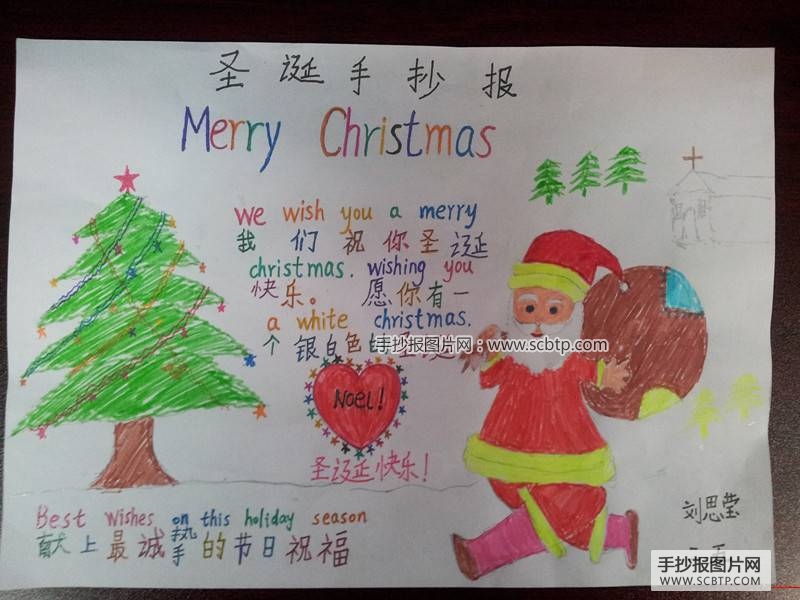 圣诞手抄报
Merry Christmas
we wish you a merry
我们祝你圣诞
christmas. wishing you
快乐。愿你有一
a white christmas.
个银白色
手抄报图片网：www.scbtp.com
Noel!
圣诞快乐！
Best wishes on this holiday season
献上最诚挚的节日祝福
刘思莹
手抄报图片网
WWW.SCBTP.COM